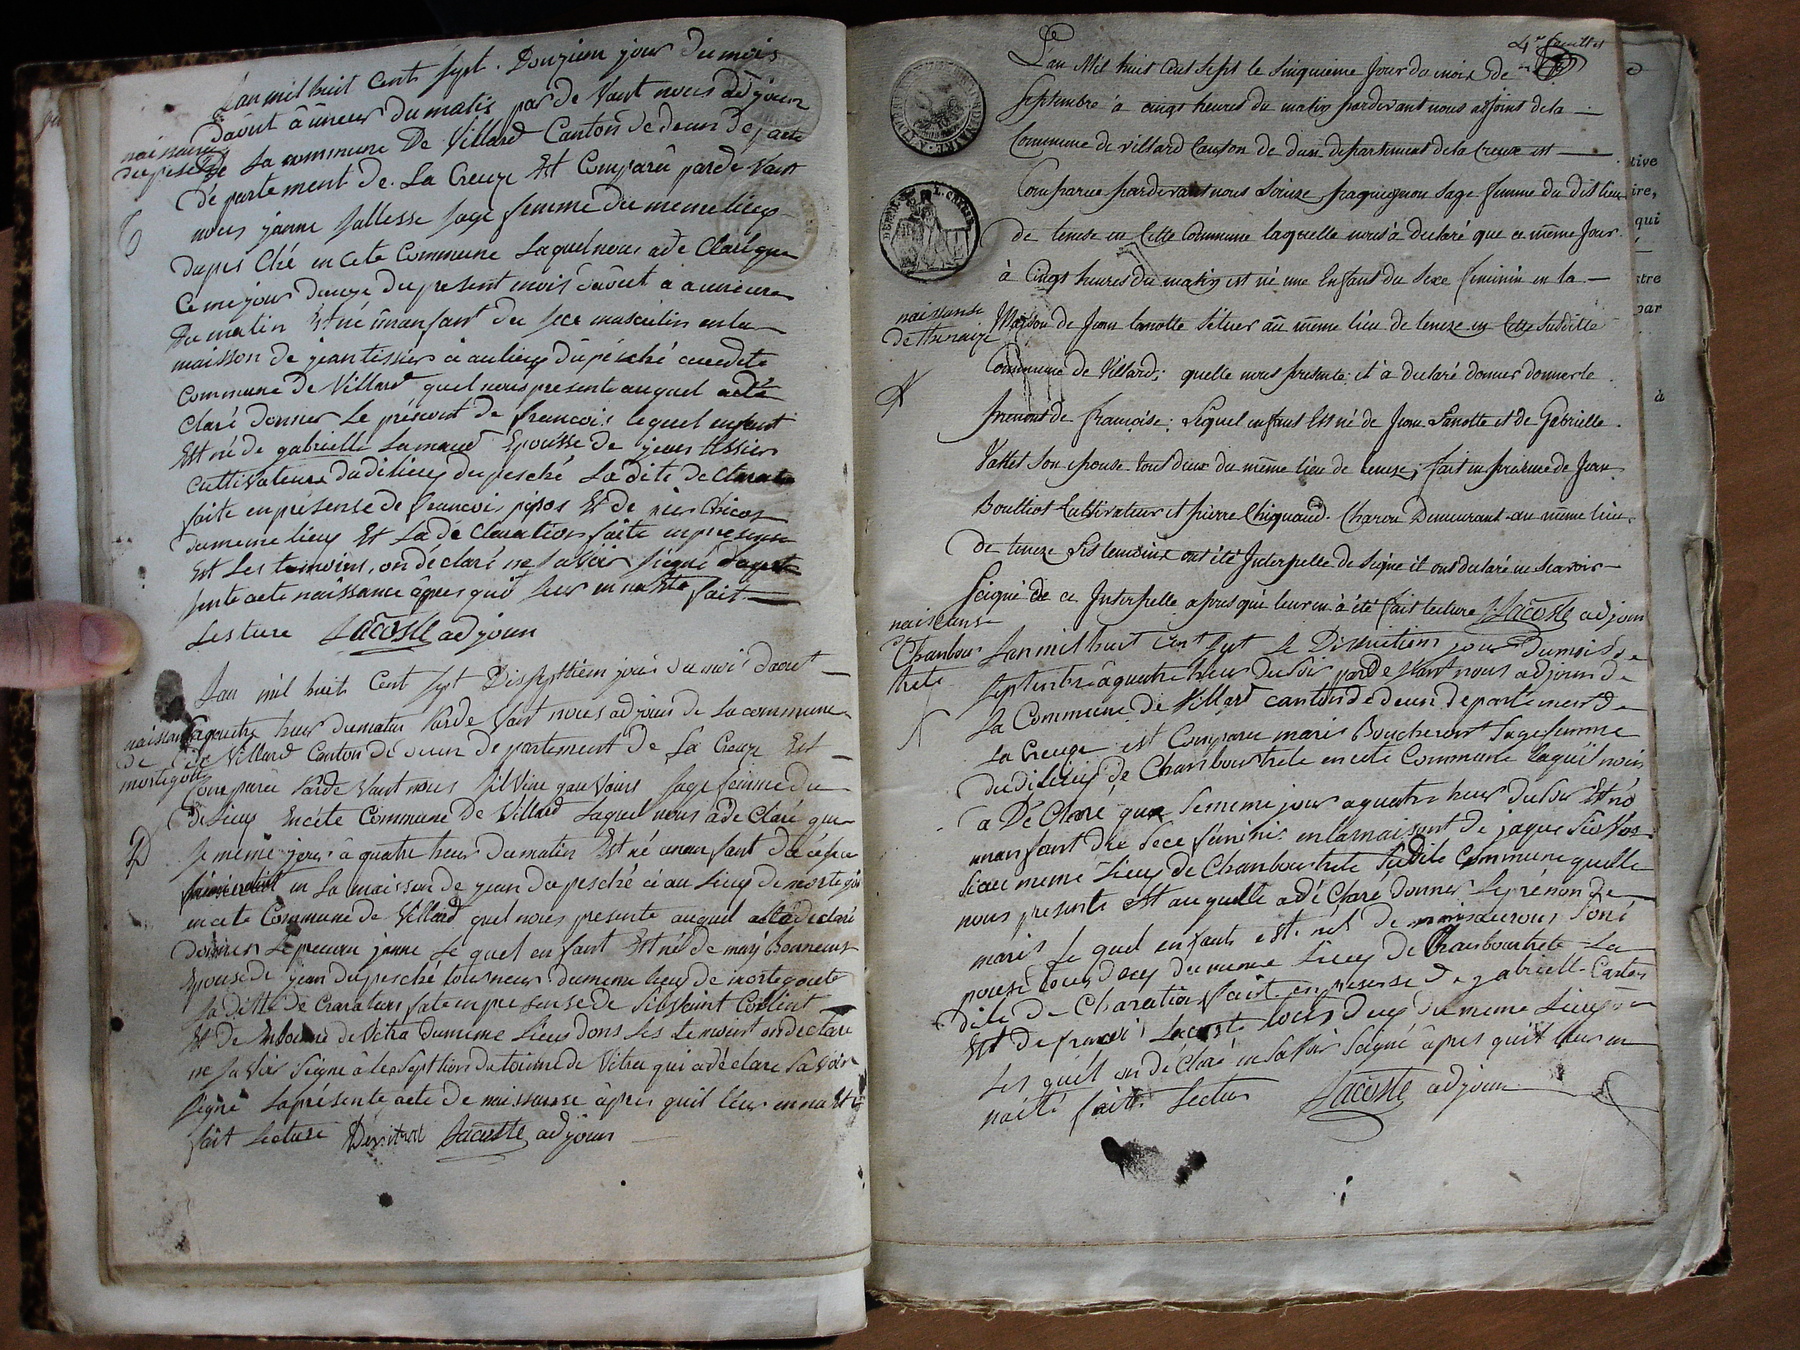 L'an mil huit cent sept. Douzieu jour du mois
daôut â ûneur du matis par de Vant nous adjoin
naissance
De La commune De Villard Canton de deun de
dupesché
dé partement de La Creuze Est Comparû parde Vant
nous janne sallesse sage femme du meme lieus
dupes Ché en Cete Commune Laquel nous a de Claré que
Ce me jour douze du present mois d'aôut a a uneure
Du matin Est né ûnanfant du sece masculin enla
maisson de jean tissier ci au lieus du pésché cueedite
Commune de Villard quel nous presente auquel a été
Claré donner Le prénont de francois lequel enfant
Est né de gabrielle Lamaud Epousse de jean tissier
cultivateure dudi lieus du pesché La dite de Claration
faite en présense de francois pépos Et de
du meme lieus Et La dé Claration faite en presense
Est Les temoins, on déclaré ne saVoir signé
sente acte nâissance âpres quil leur en na été fait
Lesture Lacoste adjoin
L'an mil huit Cent sept Dissepttiem jour du mois daout
naissance
aquatre heur du matin Parde Vant nous adjoin de La commune
de
de Villard Canton de deun de partement de La Creuze Est
mortegoutte
Comparûe Parde Vant nous silvine gauVoins sage femme du
di Lieus En Cete Commune de Villard Laquel nous a de Claré que
Se même jour â quatre heur du matin Est né unanfant du céfce
feminin en La maisson de jean dupesché ci au Lieus de mortegou
en cete Commune de Villard quel nous presente auquel a été declaré
donner Le prenon janne Le quel enfant Est né de marÿ bonnemis
Epouse de jean dupesché tourneur du meme lieus de mortegoute
La ditte de Claration faite en presense de silvaint Collint
Et de Antoine de Vitra du meme Lieus dons Les temoint on declaré
ne saVoir signe â Leseption dantoinne de Vitra qui a déclaré saVoir
signé La présente acte de naissansse âprés quil Leur en na Eté
fait Lecture Devitrat Lacoste adjoin
4me feuillet
L'an Mil huit Cent sept le sinquieme Jour du mois de
Septembre à cinq heures du matin pardevant nous adjoint de la
Commune de villard Canton de dun departement de la Creuze est
Comparue pardevant nous Louize paquignon sage femme du dit lieu
de teneze en Cette Commune laquelle nous à declaré que ce même Jour
à Cinq heures du matin est né une Enfant du Sexe feminin en la
naissanse
Maison de Jean lanotte Situer au même lieu de teneze en Cette Susditte
de thenaize
Commune de Villard; quelle nous presente et à declaré donner donner le
prenont de françoise; Lequel enfant Est né de Jean Lanotte et de Gabrielle
Vallet Son epouse tous deux du même lieu de teneze; fait en présence de Jean
Boulliot Cultivateur et pierre Chignaud Charon Demeurant au même lieu
de teneze Les temoins ont été Interpelle de signe et ont declaré ne scavoir
Seigné de ce Interpelle apres qu'i leur en à été fait lecture Lacoste adjoin
naissanse
Chanbous
trete
L'an mil huit Cent sept le Disneutiem jour du mois de
septenbre âquatre heur du soir parde Vant nous adjoin de
La Commune de Villard canton de deun departement de
La Creuze est Comparue marie Boucheront sage femme
dudi Lieus de Chanboustrete en cete Commune laquel nous
a De Claré que Se meme jour a quatre heur du soir Est né
unanfant du sece féninis en la maisont de jaque
ci au meme Lieus de Chanboustrete Sudite Commune quelle
nous presente Et auquelle a de Claré donner Le prénon de
marie Le quel enfants est nés de
pouse tous deus du meme Lieus de Chanboustrete La
dite de Claration fait en presense de gabriell
Est de francoi Lacoste tous deus du meme Lieus
Les quels on de Claré ne saVoir Seigné âpres quil leur en
naété fait Lectur Lacoste adjoin
DEP. DE LA CREUSE
tive
ire,
qui
par
à